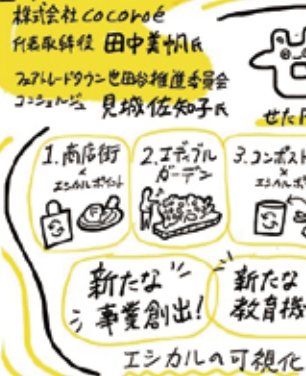 株式会社cocoroé
代表取締役 田中美帆氏
フェアトレードタウン世田谷推進委員会
コンシェルジュ 見城佐知子氏
せた
1.商店街
×
エシカルポイント
2.エディブル
ガーデン
3.コンポスト
×
エシカルポ
新たな
事業創出!
新たな
教育機
エシカルの可視化